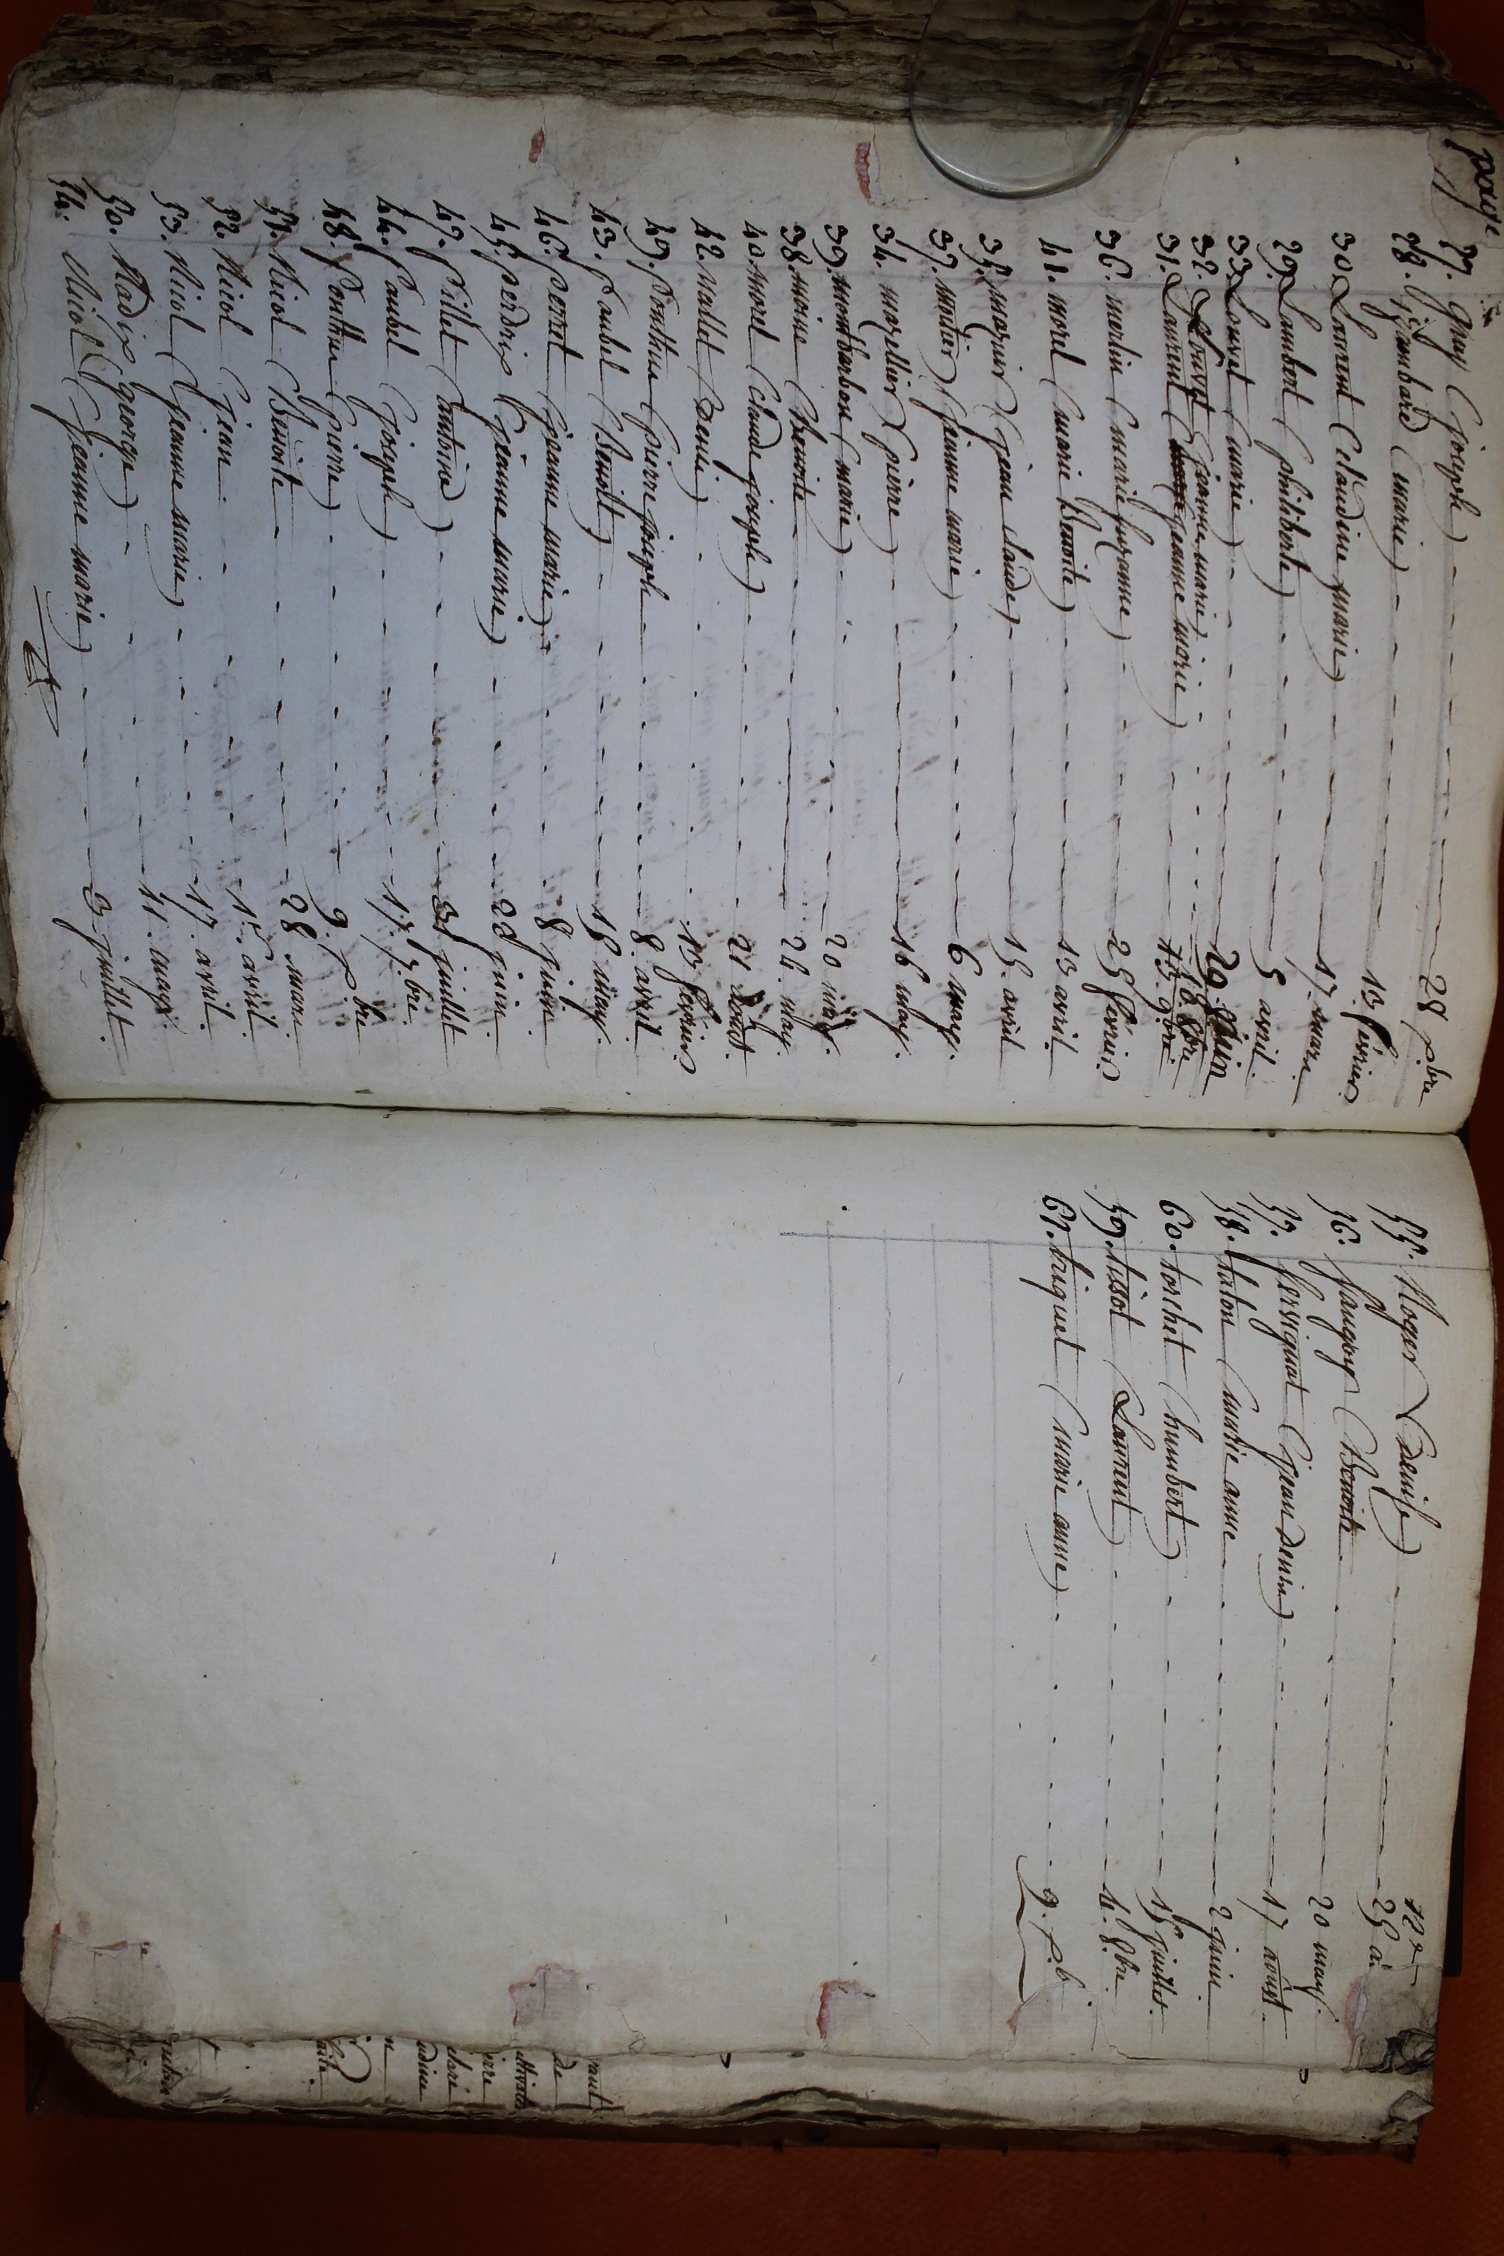 page
27. Guay (joseph) 28 x.bre
28. jambard (marie) 13 février
30 Laurent (Claudine marie) 17 mars
29. Lambert (philiberte) 5 avril.
33 Louvet (marie) 29 juin
32. Louvat (jeanne marie) 18 8bre
31. Laurent (jeanne marie) 13. 9.bre
36. merlin (marie suzanne) 25 février
41. morel (marie Benoite) 13 avril
35. marguin (jean claude) 15. avril
37. mutier (jeanne marie) 6 may.
34. mazellier (pierre) 16 may.
39. montbarbon (marie) 20 may.
38. moine (Benoite 24. may.
40. morel (Claude joseph) 21 aoust.
42. nallet (Denise) 13 février
49. Ponthus (pierre joseph 8. avril
43. Paubel (Benoit) 18 may.
46. perrat (jeanne marie) 8 juin
45. perdrix (jeanne marie) 28 juin
47. Pillet (antoine) 31 juillet
44. Paubel (joseph) 17. 7.bre.
48. Ponthus (pierre) 9. x.bre
51. Nicol (Benoite 28 mars.
52. Nicol (jean 15. avril.
53. Nicol (jeanne marie) 17. avril.
50. Radix (george) 11. may.
54. Nicol (jeanne marie) 3 juillet.
55. Roger (Denise) 25 a.
56. (Benoite 20 may.
57. Serrignat (jean Denis) 17 aoust.
58. talon (marie anne 2 juin.
60. torchet (humbert) 15 juillet.
59. tissot (Laurent) 4. 8bre
61. briquet (marie anne) 9. x.b.